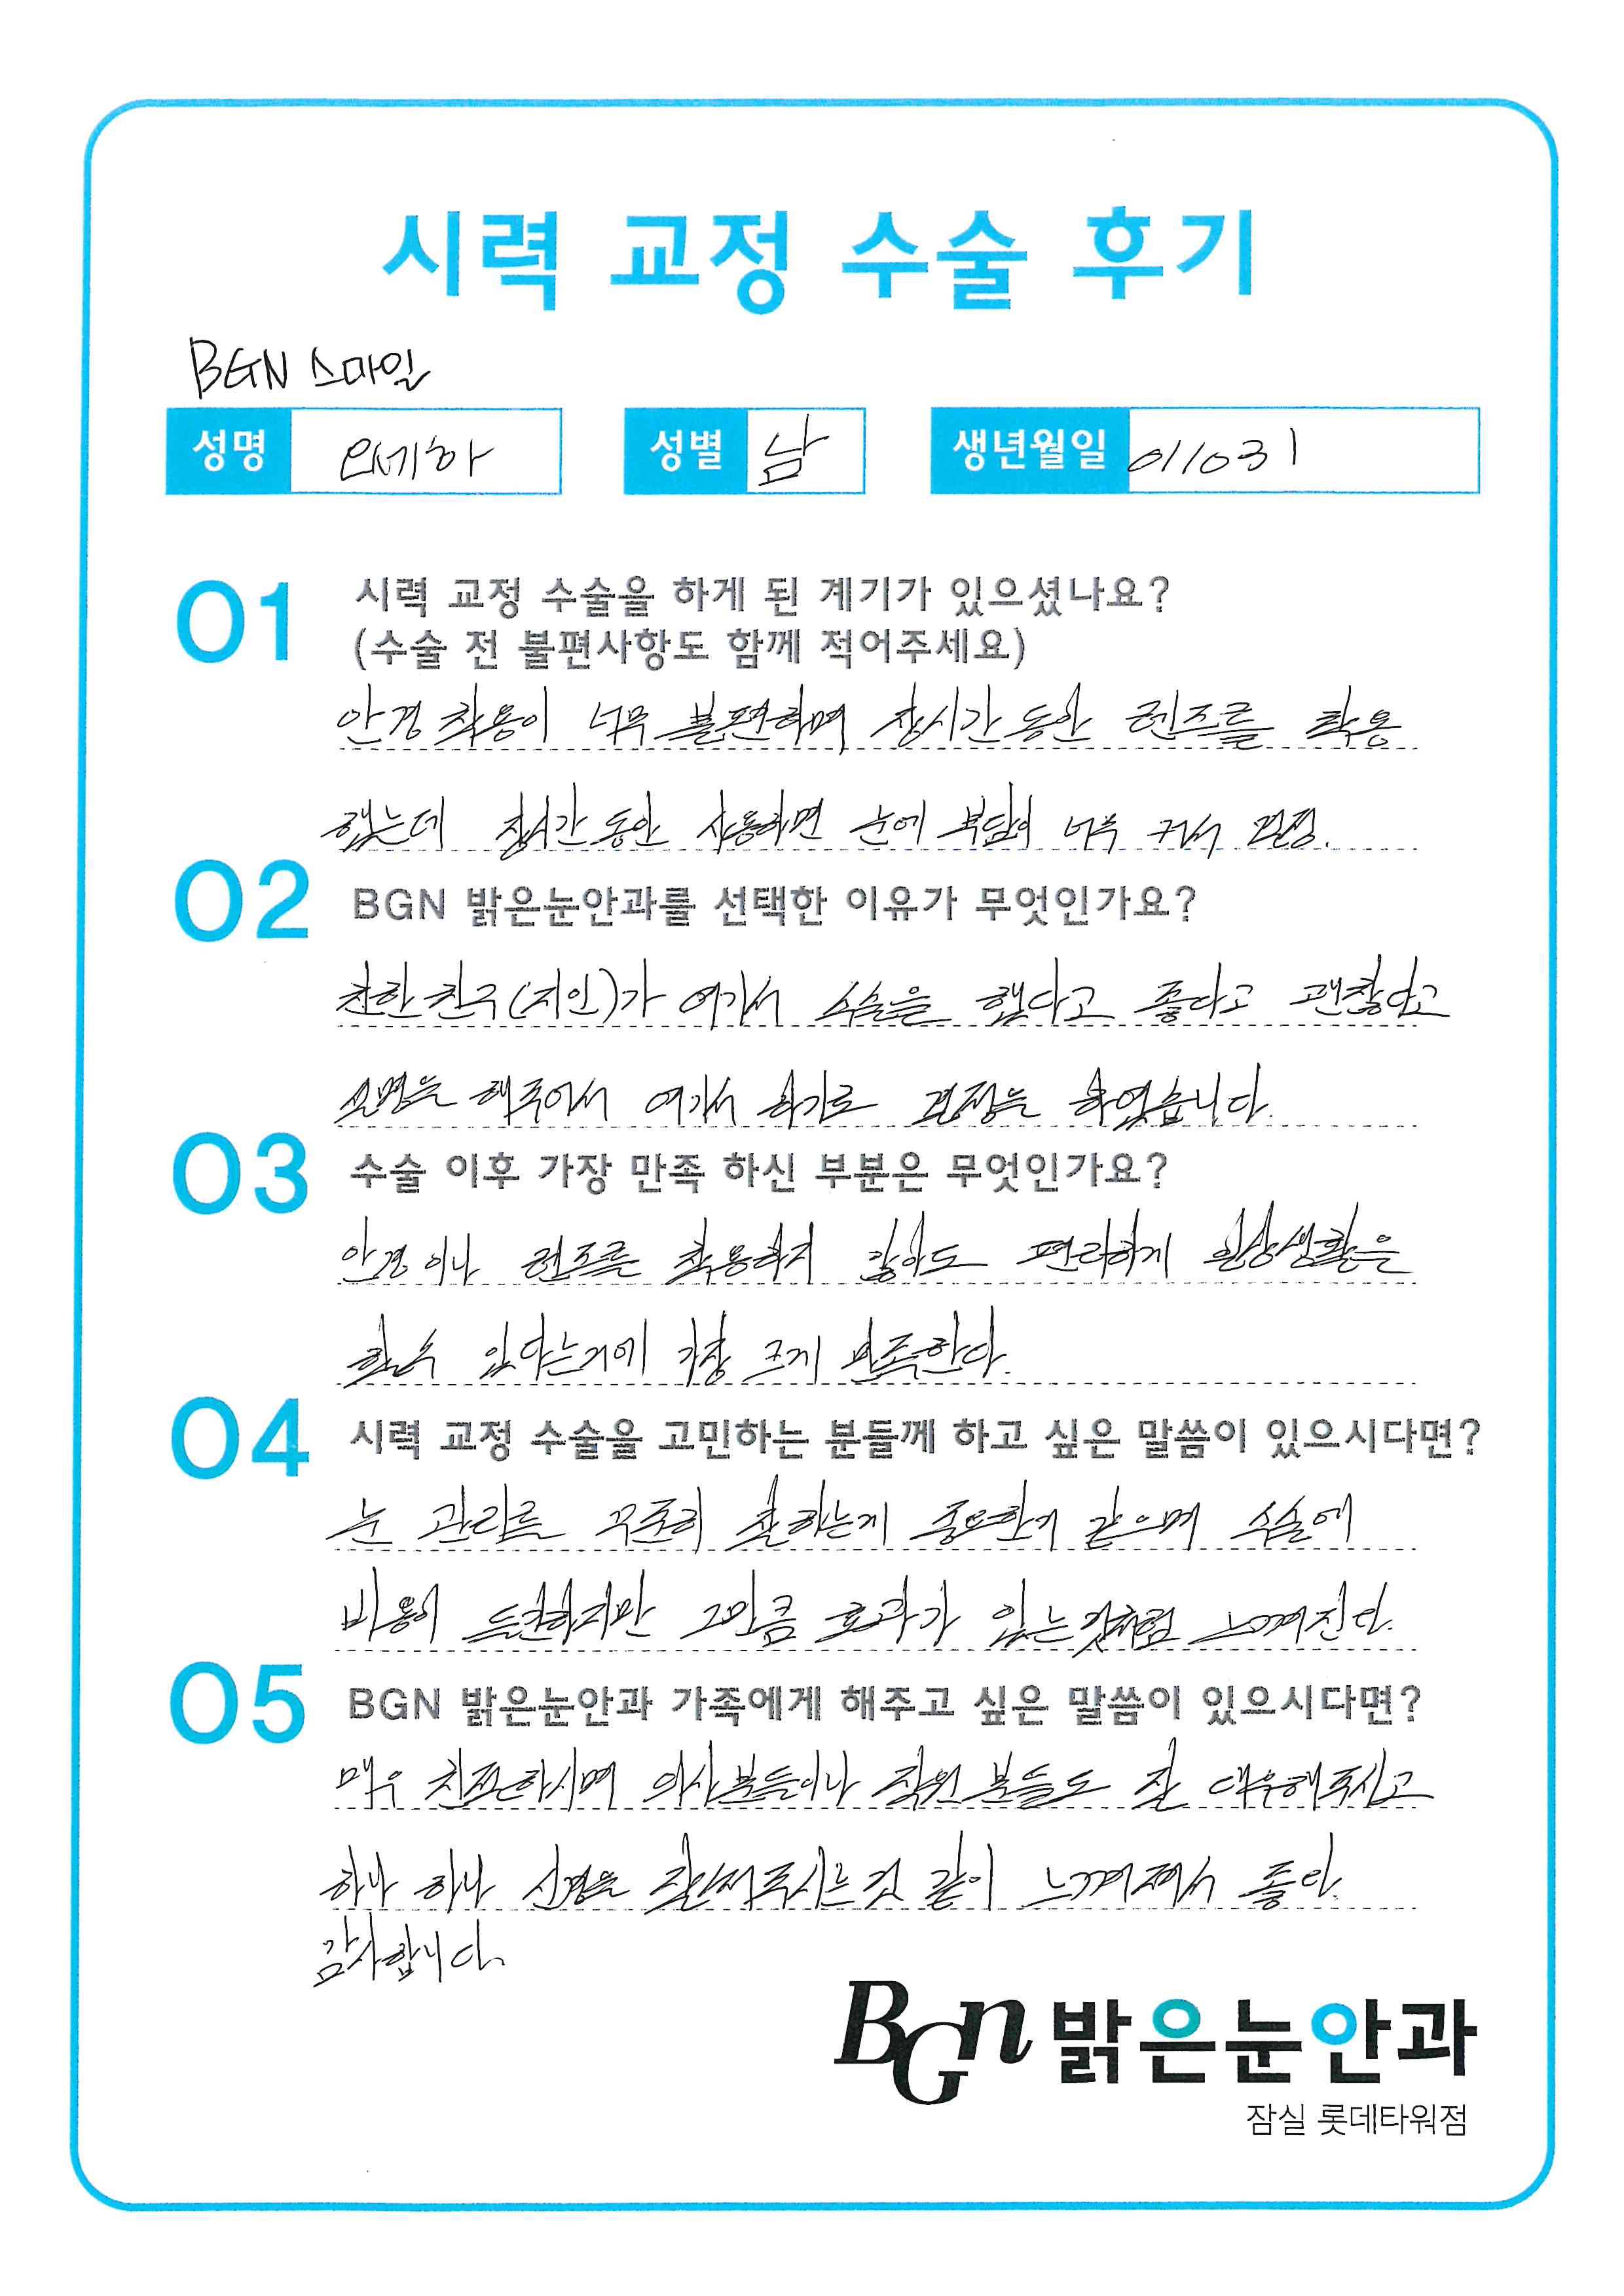 시력 교정 수술 후기
BGN 스마일
성명 인세하 성별 남 생년월일 011031
01 시력 교정 수술을 하게 된 계기가 있으셨나요?
(수술 전 불편사항도 함께 적어주세요)
안경 착용이 너무 불편하며 장시간 동안 렌즈를 착용
했는데 장시간 동안 사용하면 눈에 부담이 너무 커서 결정.
02 BGN 밝은눈안과를 선택한 이유가 무엇인가요?
친한 친구(지인)가 여기서 수술을 했다고 좋다고 괜찮다고
설명을 해주어서 여기서 하기로 결정을 하였습니다.
03 수술 이후 가장 만족 하신 부분은 무엇인가요?
안경이나 렌즈를 착용하지 않아도 편리하게 일상생활을
할 수 있다는거에 가장 크게 만족한다.
04 시력 교정 수술을 고민하는 분들께 하고 싶은 말씀이 있으시다면?
눈 관리를 꾸준히 잘 하는게 중요한거 같으며 수술에
비용이 득천하지만 그만큼 효과가 있는것처럼 느껴진다.
05 BGN 밝은눈안과 가족에게 해주고 싶은 말씀이 있으시다면?
매우 친절하시며 의사분들이나 직원 분들도 잘 대우해주시고
하나 하나 신경을 잘써주시는것 같이 느껴져서 좋다.
감사합니다.
BGN 밝은눈안과
잠실 롯데타워점